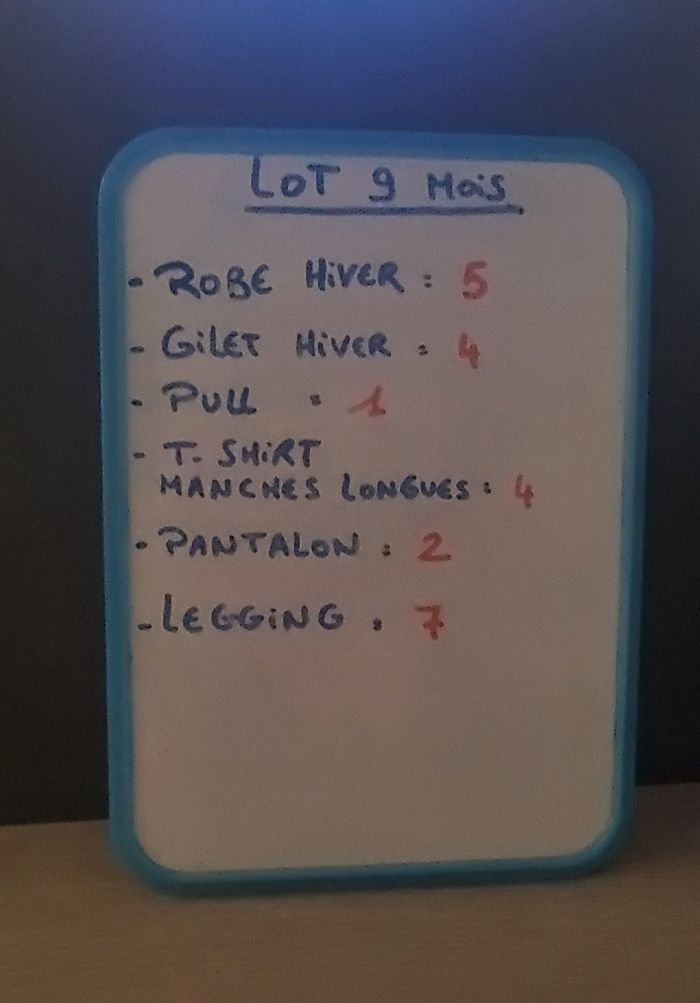 LOT 9 MOiS
- ROBE HiVER : 5
- GiLET HiVER : 4
- PULL : 1
- T. SHiRT
MANCHES LONGUES : 4
- PANTALON : 2
- LEGGiNG : 7